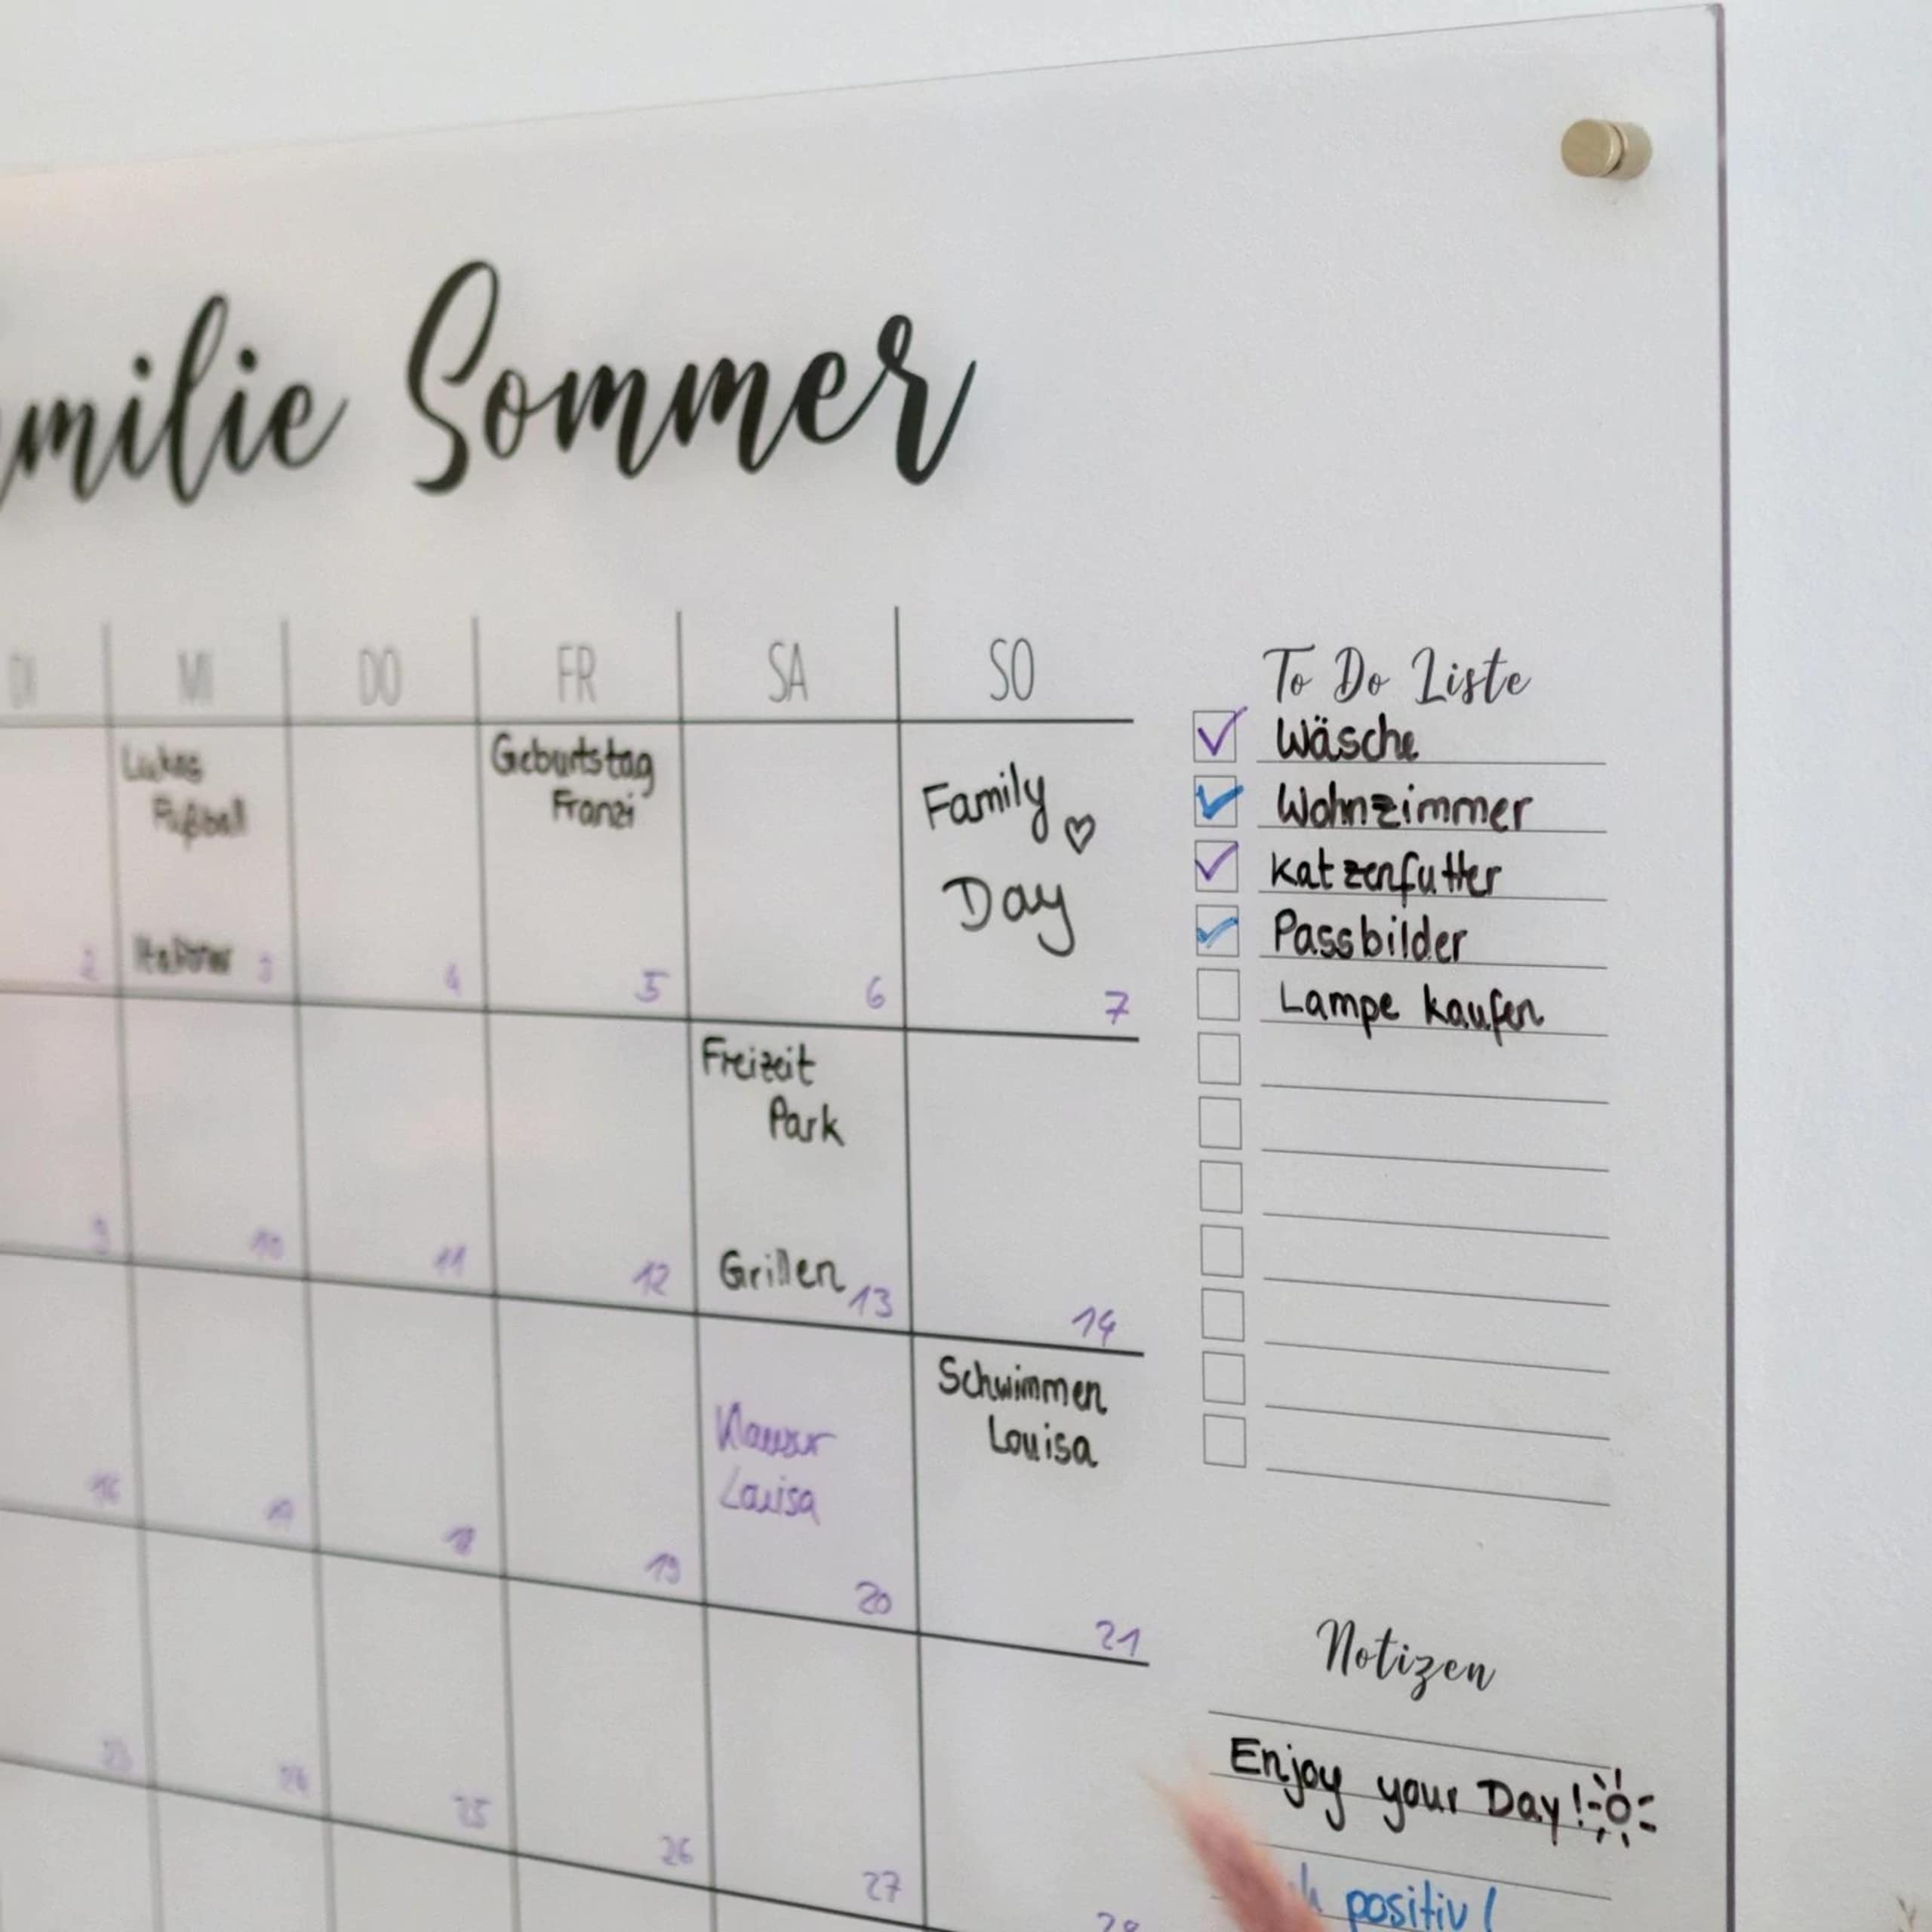 milie Sommer
DI MI DO FR SA SO
Lukas
Fußball
2
3
4
Geburtstag
Franzi
5
6
Family ♡
Day
7
9
10
11
12
Freizeit
Park
Grillen
13
14
16
17
18
19
Klausur
Louisa
20
Schwimmen
Louisa
21
23
24
25
26
27
28
To Do Liste
Wäsche
Wohnzimmer
Katzenfutter
Passbilder
Lampe kaufen
Notizen
Enjoy your Day!
positiv!